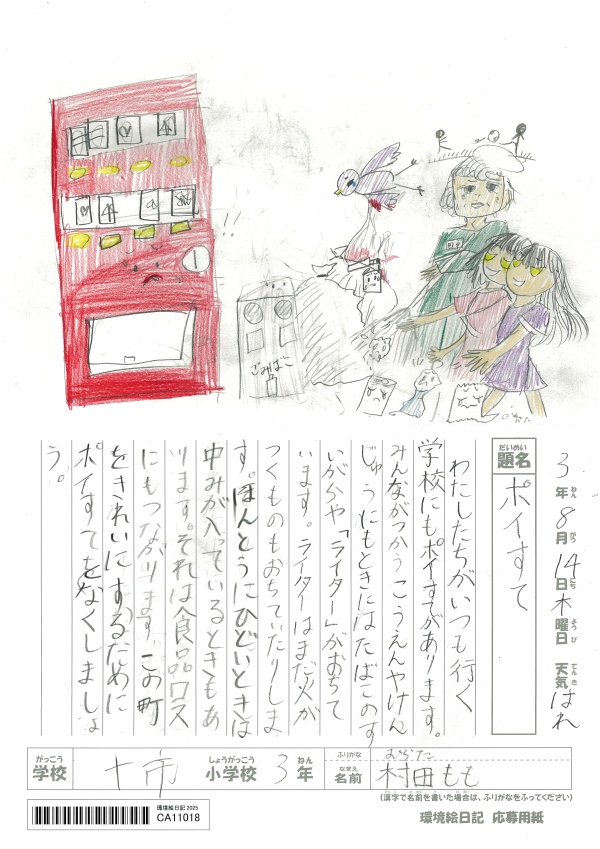 ごみばこ
3年8月14日木曜日 天気はれ
ねん がつ にち ようび てんき
だいめい
題名 ポイすて
わたしたちがいつも行く
学校にもポイすてがあります。
みんながつかうこうえんやけん
じゅうにもときにはたばこのす
いがらや「ライター」がおちて
います。ライターはまだ火が
つくものもおちていたりしま
す。ほんとうにひどいときは
中みが入っているときもあ
ります。それは食品ロス
にもつながります。この町
をきれいにするために
ポイすてをなくしましょ
う。
がっこう しょうがっこう ねん
学校 十市 小学校 3年
ふりがな むらた
なまえ
名前 村田もも
(漢字で名前を書いた場合は、ふりがなをふってください)
環境絵日記 2025
CA11018
環境絵日記 応募用紙